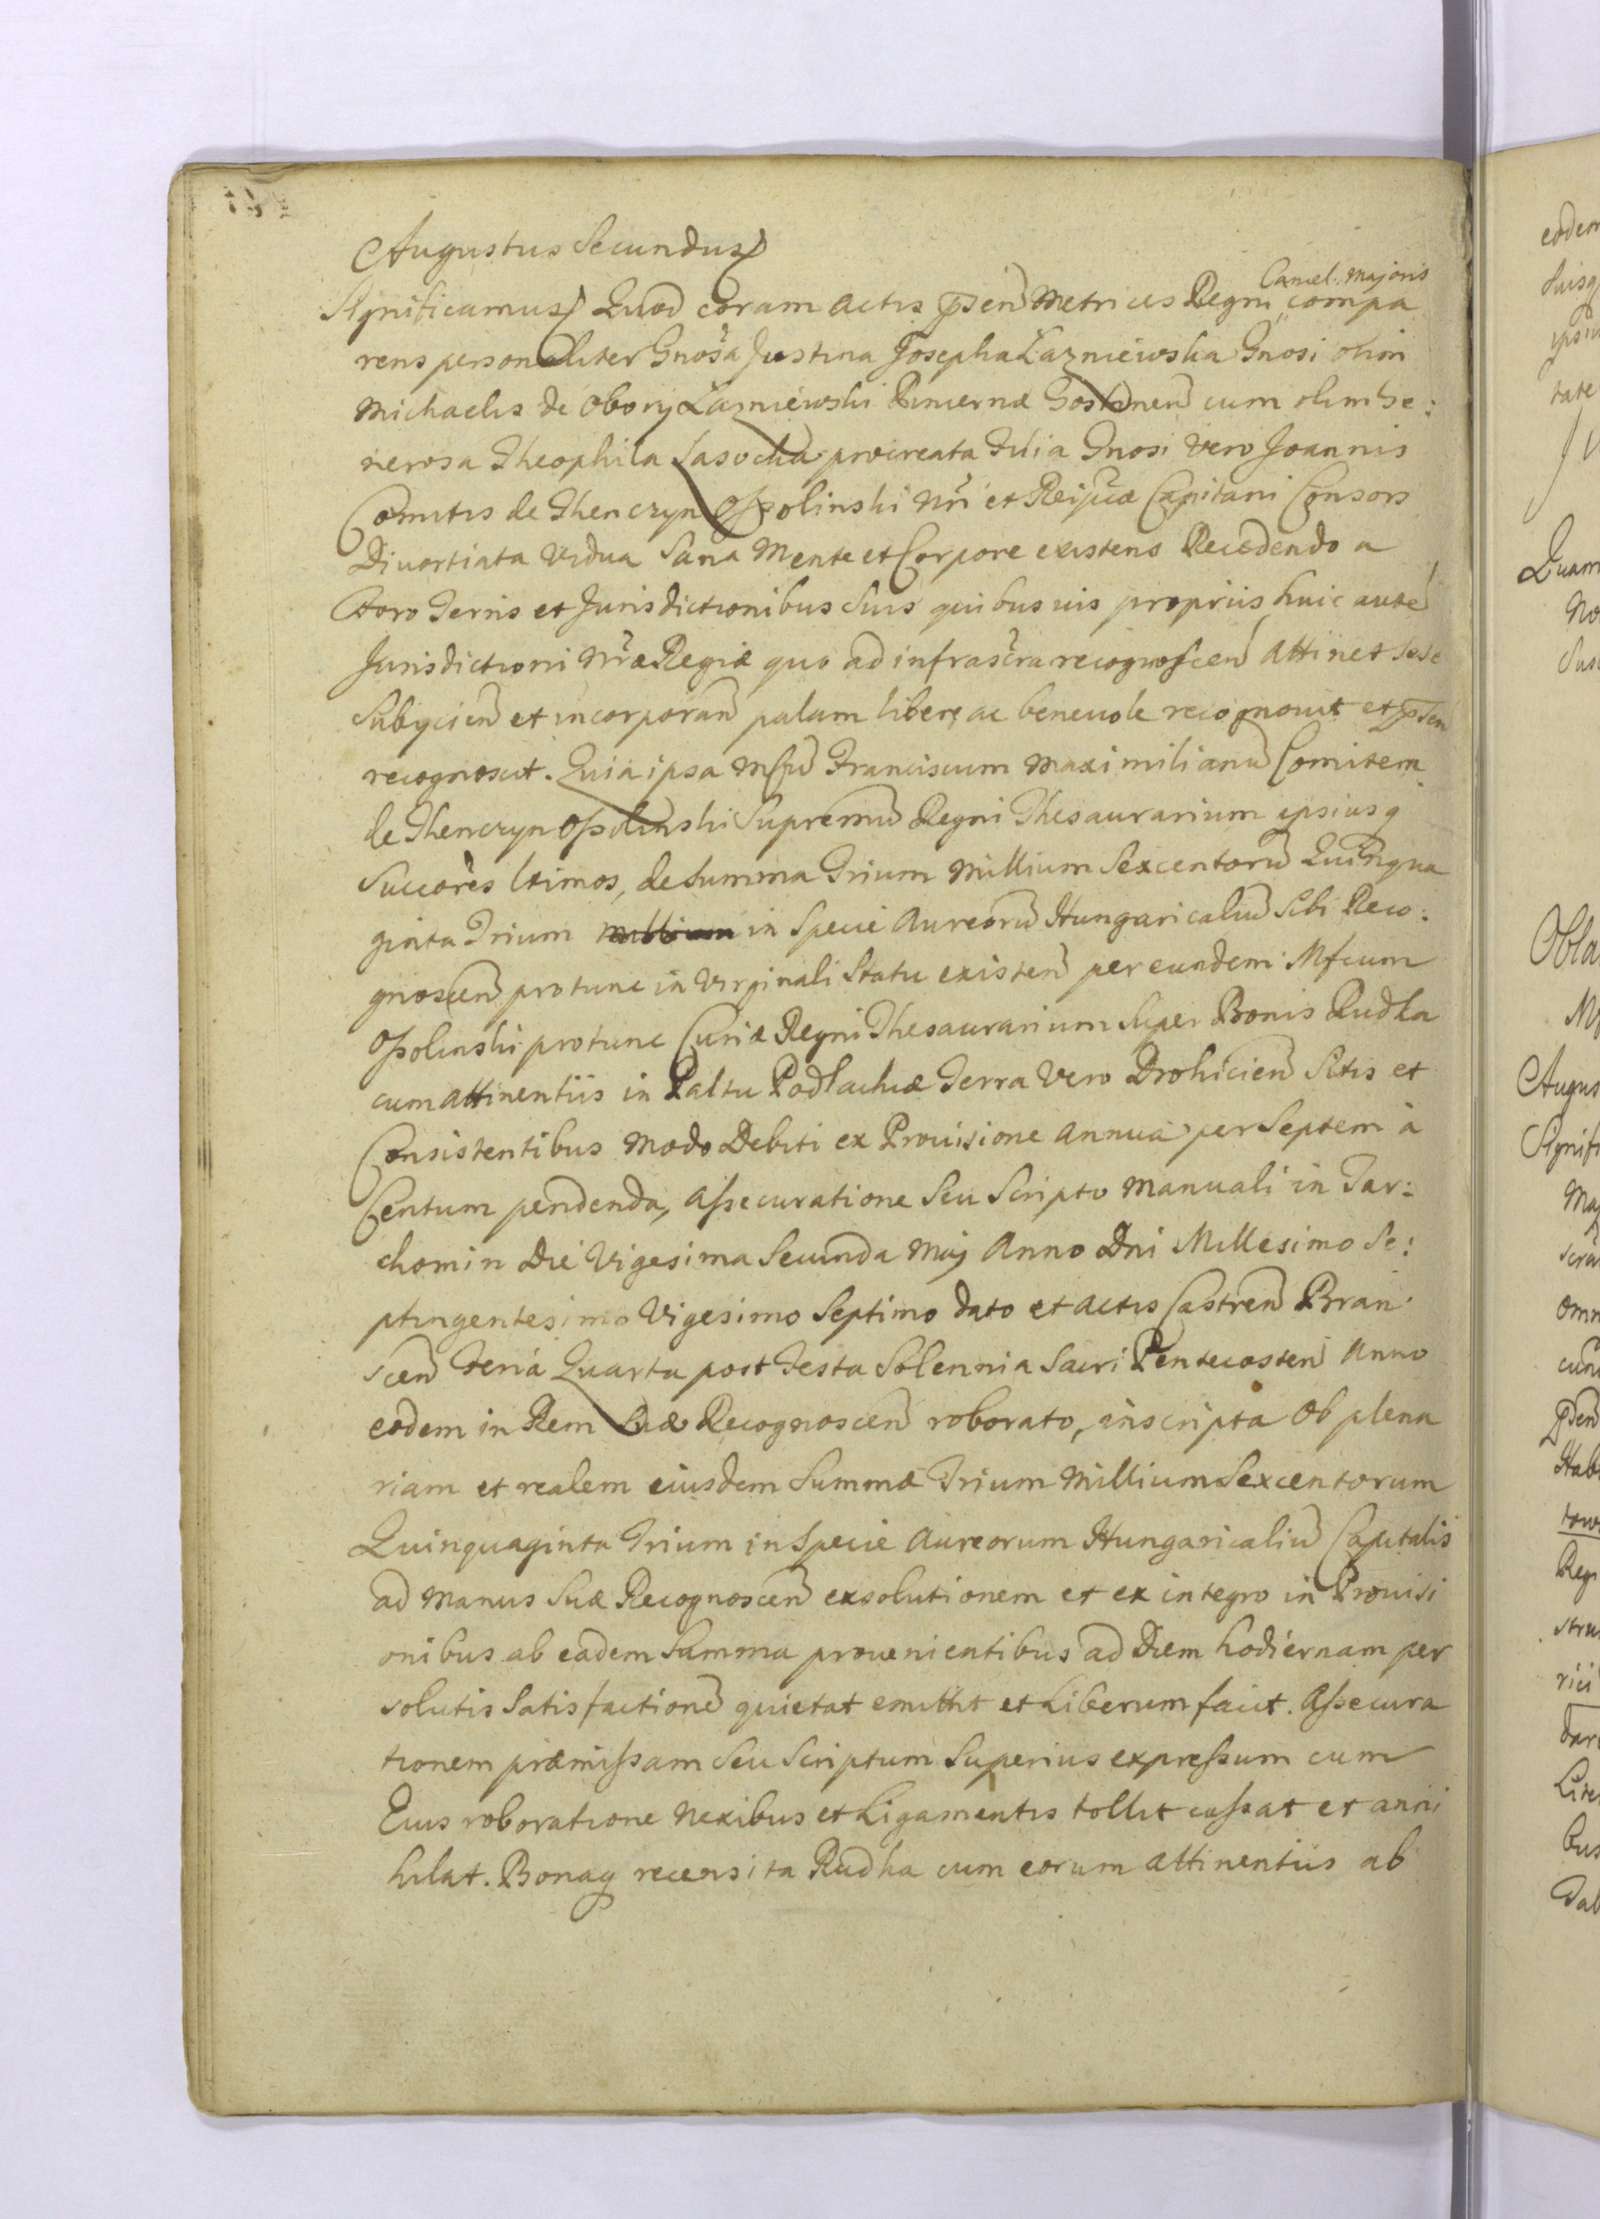 Augustus Secundus
Cancel. Majoris
Significamus Quod coram actis p̃sen̄ Metrices Regni compa
rens personaliter Gnosa Justina Josepha Łazniewska Gnosi olim
Michaelis de Obory Łazniewski Pincernæ Gostinen̄ cum olim Ge:
nerosa Theophila Lasocka procreata Filia Gnosi vero Joannis
Comitis de Thenczyn Ossolinski Nri et Reipcæ Capitani Consors
Divortiata Vidua Sana Mente et Corpore existens Recedendo a
Foro Terris et Jurisdictionibus Suis quibusvis propriis huic aute̅
Jurisdictioni Nræ Regiæ quo ad infrascra recognoscen̄ attinet sese
Subycien̄ et incorporan̄ palam libere ac benevole recognovit et p̃sen
recognoscit. Quia ipsa Mfcu̅ Franciscum Maximilianu̅ Comitem
de Thenczyn Ossolinski Supremu̅ Regni Thesaurarium ipsiusq
Succores ltimos, de Summa Trium Millium Sexcentoru̅ Quinqua
ginta Trium in Specie Aureoru̅ Hungaricaliu̅ Sibi Reco:
gnoscen̄ protunc in Virginali Statu existen̄ per eundem Mfcum
Ossolinski protunc Curiæ Regni Thesaurarium Super Bonis Rudka
cum attinentiis in Paltu Podlachiæ Terra Vero Drohicien̄ Sitis et
Consistentibus Modo Debiti ex Provisione Annua per Septem à
Centum pendenda, Assecuratione Seu Scripto Manuali in Tar:
chomin Die Vigesima Secunda Maij Anno Dni Millesimo Se:
ptingentesimo Vigesimo Septimo dato et actis Castren̄ Bran
scen̄ Feria Quarta post Festa Solennia Sacri Pentecosten̄ Anno
eodem in Rem Suæ Recognoscen̄ roborato, inscripta Ob plena
riam et realem eiusdem Summæ Trium Millium Sexcentorum
Quinquaginta Trium in Specie Aureorum Hungaricaliu̅ Capitalis
ad Manus Suæ Recognoscen̄ exsolutionem et ex integro in Provisi
onibus ab eadem Summa provenientibus ad Diem hodiernam per
solutis Satisfactione̅ quietat emittit et Liberum facit. Assecura
tionem præmissam Seu Scriptum Superius expressum cum
Eius roboratione Nexibus et Ligamentis tollit cassat et anni
hilat. Bonaq recensita Rudka cum eorum attinentiis ab